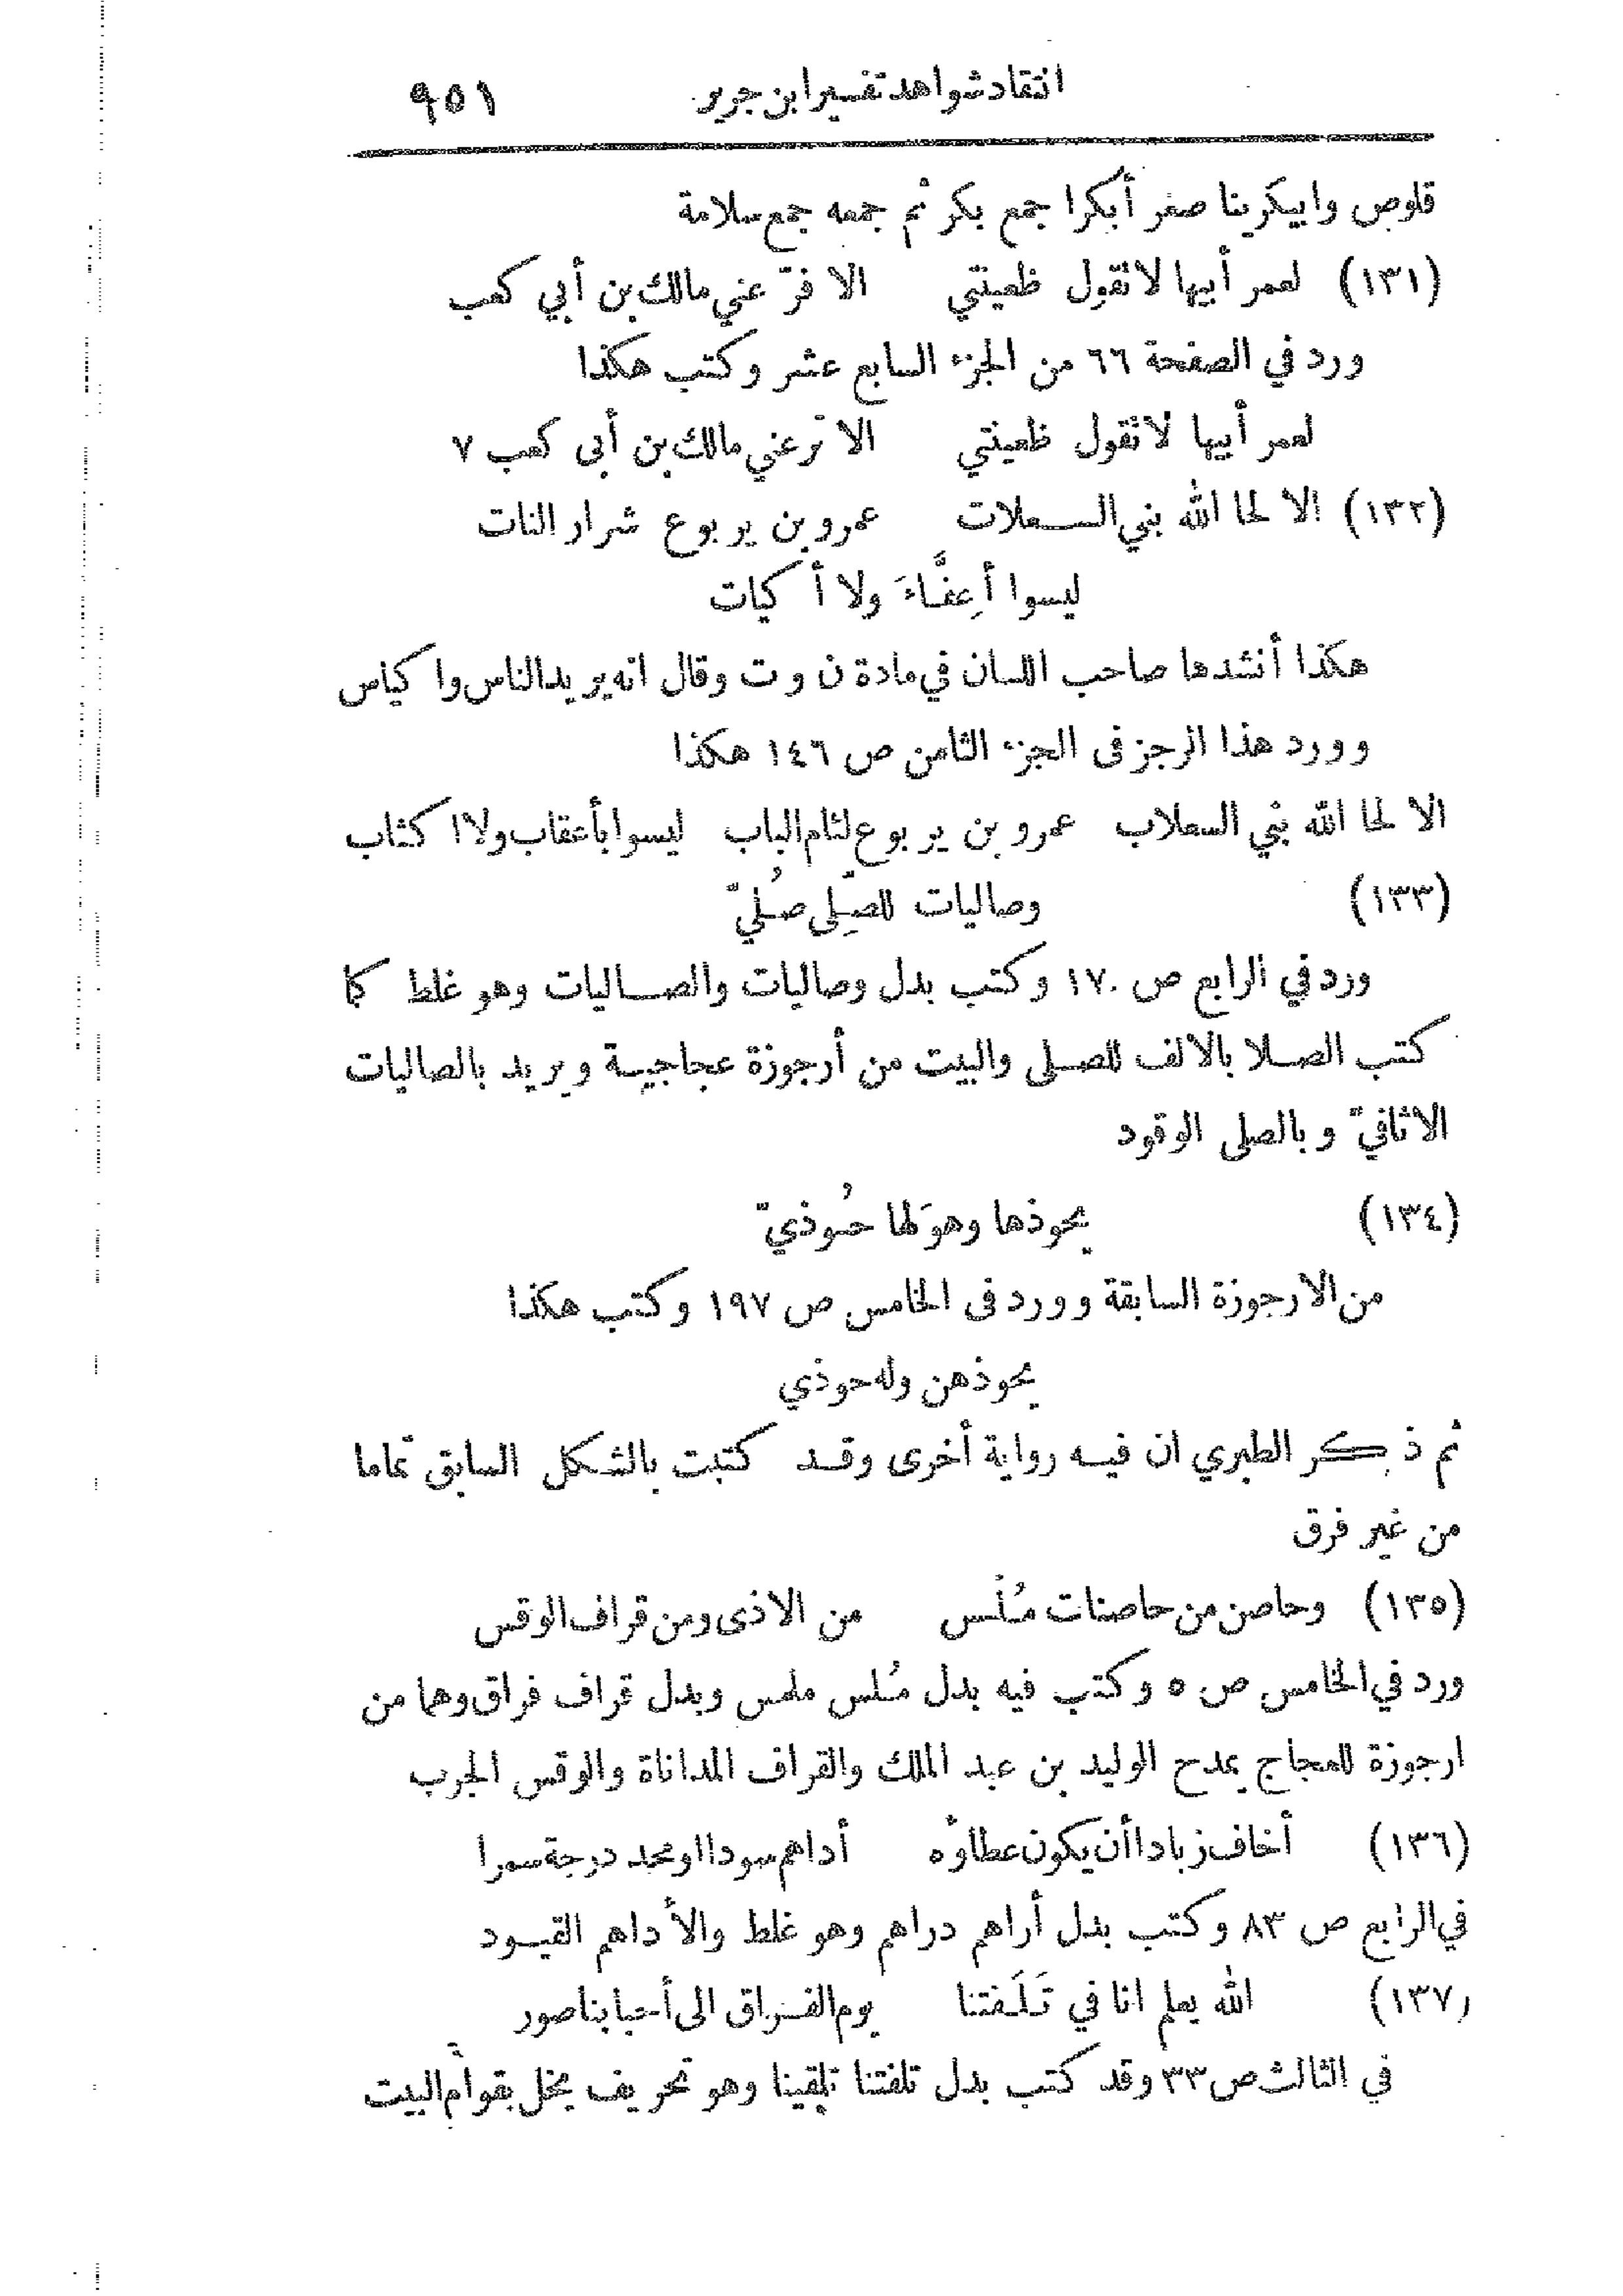 انتقاد شواهد تفسير ابن جرير ٩٥١
قلوص وابيكرينا صغر أبكرا جمع بكر ثم جمعه جمع سلامة
(١٣١) لعمر أبيها لا تقول ظعينتي الا فرّ عني مالك بن أبي كعب
ورد في الصفحة ٦٦ من الجزء السابع عشر وكتب هكذا
لعمر أبيها لا تقول ظعينتي الا ترّ عني مالك بن أبى كعب ٧
(١٣٢) الا لحا الله بني السعلات عمرو بن يربوع شرار النات
ليسوا أعِفَّاءَ ولا أكيات
هكذا أنشدها صاحب اللسان في مادة ن و ت وقال انه يريد الناس واكياس
وورد هذا الرجز فى الجزء الثامن ص ١٤٦ هكذا
الا لحا الله بني السعلاب عمرو بن يربوع لئام الباب ليسوا بأعقاب ولا اكثاب
(١٣٣) وصاليات للصِّلى صُليّ
ورد في الرابع ص ١٧٠ وكتب بدل وصاليات والصاليات وهو غلط كما
كتب الصلا بالالف للصلى والبيت من أرجوزة عجاجية ويريد بالصاليات
الاثافيّ وبالصلى الوقود
(١٣٤) يحوذها وهوَ لها حُوذيّ
من الارجوزة السابقة وورد فى الخامس ص ١٩٧ وكتب هكذا
يحوذهن وله حوذي
ثم ذكر الطبري ان فيه رواية أخرى وقد كتبت بالشكل السابق تماما
من غير فرق
(١٣٥) وحاصن من حاصنات مُلْس من الاذى ومن قراف الوقس
ورد في الخامس ص ٥ وكتب فيه بدل مُلس ملمس وبدل قراف فراق وهما من
ارجوزة للعجاج يمدح الوليد بن عبد الملك والقراف المداناة والوقس الجرب
(١٣٦) أخاف زيادا أن يكون عطاؤه أداهم سودا او محدرجة سمرا
في الرابع ص ٨٣ وكتب بدل أراهم دراهم وهو غلط والأداهم القيود
(١٣٧) الله يعلم انا في تَلَفتنا يوم الفراق الى أحبابنا صور
في الثالث ص ٣٣ وقد كتب بدل تلفتنا تلقينا وهو تحريف يخل بقوام البيت